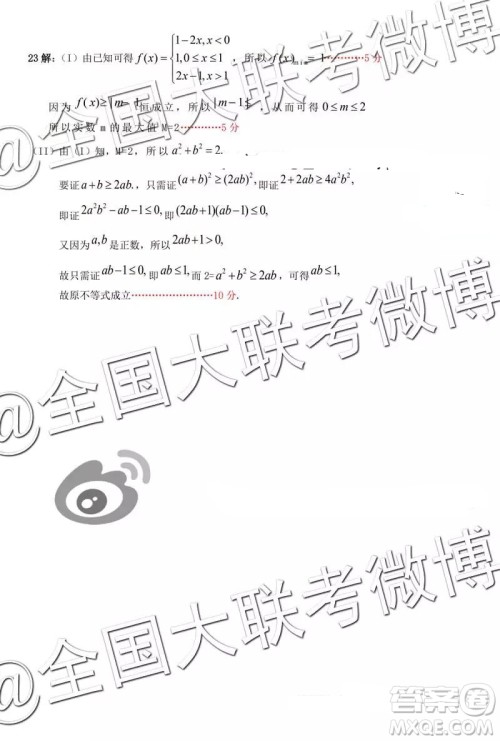 23 解:（I）由已知可得 f(x)={1-2x, x<0
1, 0≤x≤1，所以 f(x)min=1············5 分
2x-1, x>1
因为 f(x)≥|m-1|恒成立，所以 |m-1|≤1，从而可得 0≤m≤2
所以实数 m 的最大值 M=2············5 分
（II）由（I）知，M=2，所以 a²+b²=2.
要证 a+b≥2ab，只需证(a+b)²≥(2ab)²，即证 2+2ab≥4a²b²，
即证 2a²b²-ab-1≤0，即证 (2ab+1)(ab-1)≤0，
又因为 a,b 是正数，所以 2ab+1>0，
故只需证 ab-1≤0，即 ab≤1，而 2=a²+b²≥2ab，可得 ab≤1，
故原不等式成立························10 分.
@全国大联考微博
@全国大联考微博
答案圈
MXQE.COM